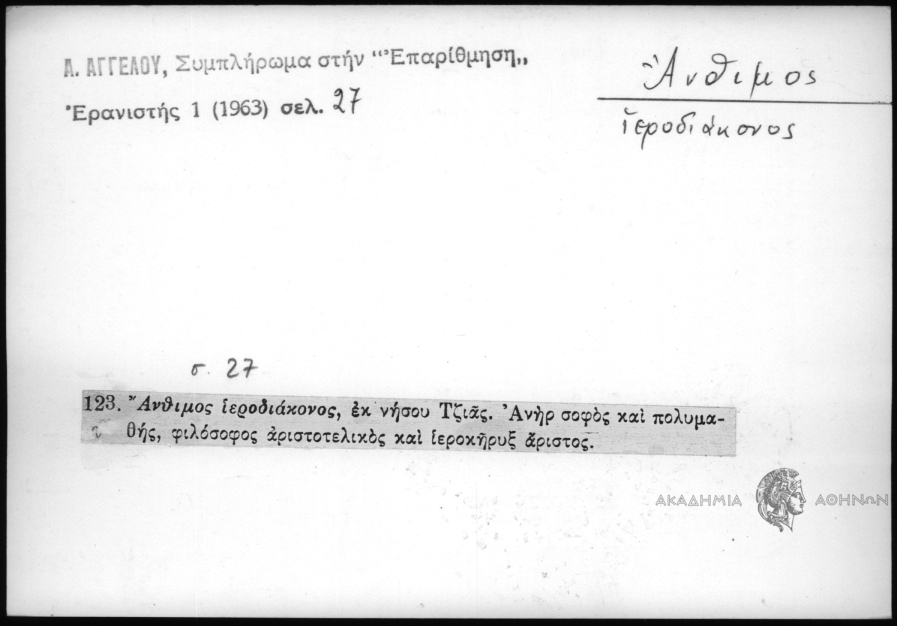 Α. ΑΓΓΕΛΟΥ, Συμπλήρωμα στήν "Ἐπαρίθμηση„
Ἐρανιστής 1 (1963) σελ. 27
Ἄνθιμος
ἱεροδιάκονος
σ. 27
123. Ἄνθιμος ἱεροδιάκονος, ἐκ νήσου Τζιᾶς. Ἀνὴρ σοφὸς καὶ πολυμα-
θής, φιλόσοφος ἀριστοτελικὸς καὶ ἱεροκῆρυξ ἄριστος.
ΑΚΑΔΗΜΙΑ ΑΘΗΝΩΝ